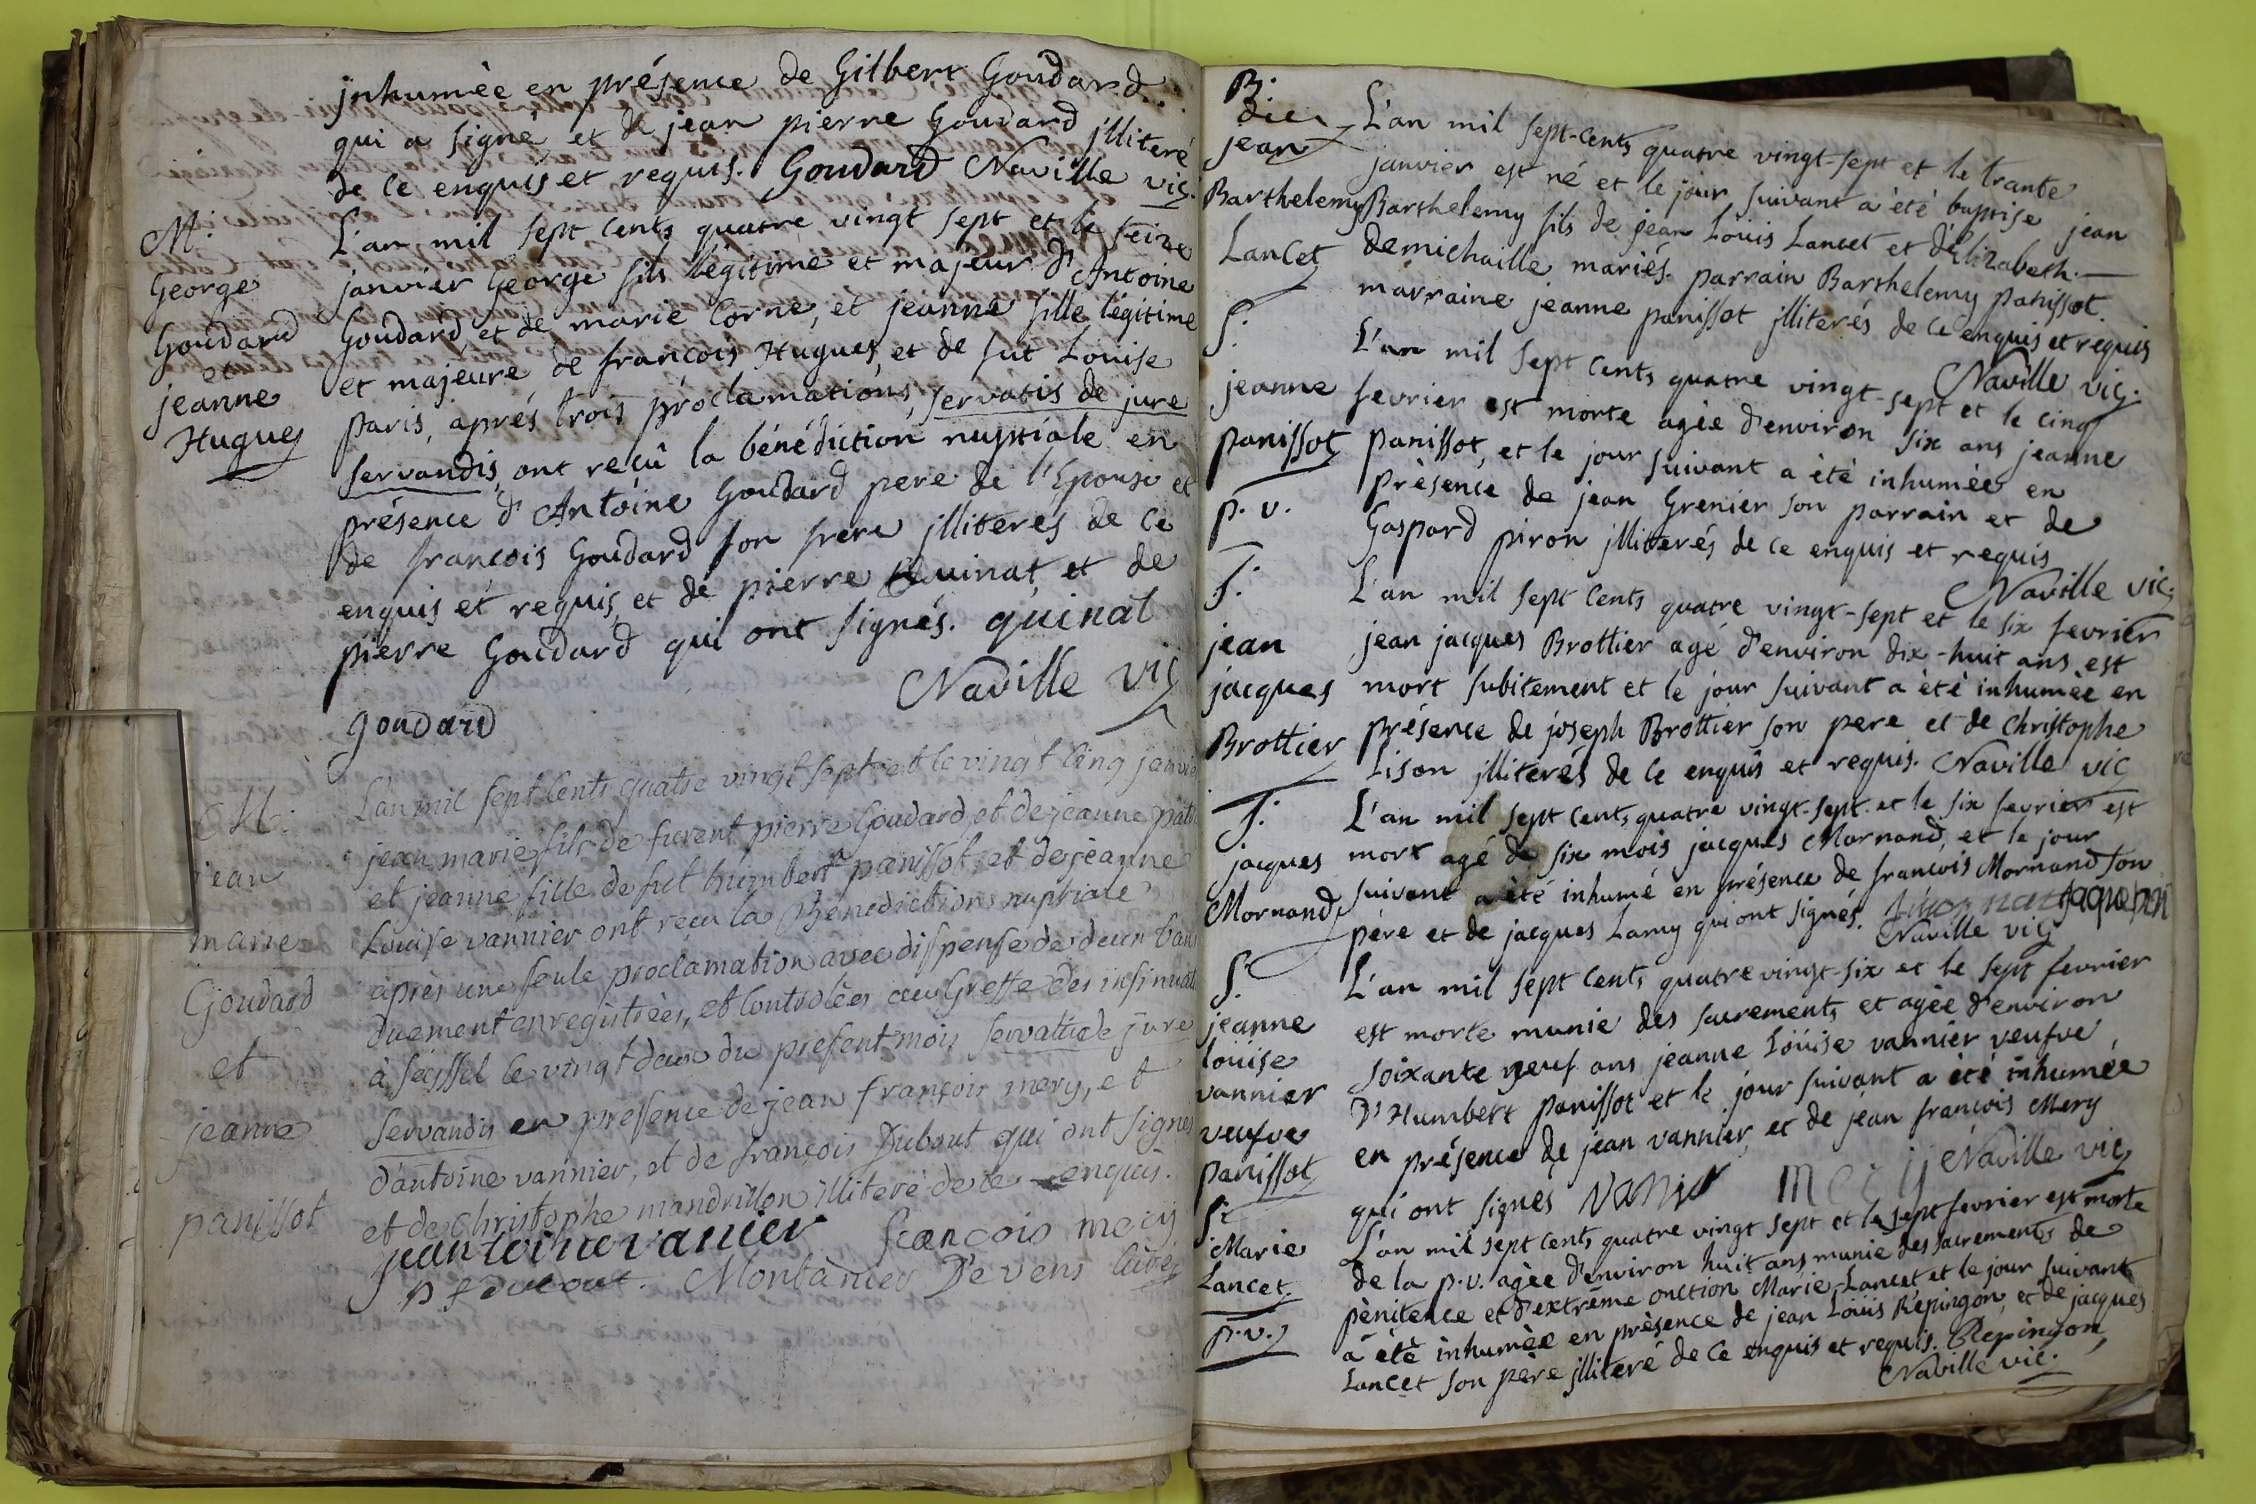 jnhumèe en présence de Gilbert Goudard
qui a signé, et de jean pierre Goudard jlliteré
de ce enquis et requis. Goudard Naville vic.
M:
George
Goudard
et
jeanne
Hugues
L'an mil sept cents quatre vingt sept et le seize
janvier George fils légitime et majeur d'Antoine
Goudard, et de marie Corne, et jeanne fille légitime
et majeure de francois Hugues, et de fut Louise
paris, aprés trois proclamations, servatis de jure
servandis, ont reçû la bénédiction nuptiale en
présence d'Antoine Goudard pere de l'Epoux et
de francois Goudard son frere jlliteres de ce
enquis et requis, et de pierre Quinat, et de
pierre Goudard qui ont signés. quinat
Naville vic
goudard
M:
jean
marie
Goudard
et
jeanne
panissot
L'an mil sept cents quatre vingt sept et le vingt cinq janvie
jean marie, fils de furent pierre Goudard, et de jeanne
et jeanne fille de fut humbert panissot, et de jeanne
Louise vannier ont reçu la Benediction nuptiale
àprès une seule proclamation avec dispense de deux bans
duement enregistrées, et controlées au Greffe des insinuat
à seyssel le vingt deux du present mois servatis de jure
servandis en presence de jean françois mery, et
d'antoine vannier, et de françois Dubout qui ont signes
et de Christophe mandrillon illiteré de ce enquis.
jeantoine vanier francois mery
p f dubout. Montanier De vens curé
B.
die
jean
Barthelemy
Lancet
L'an mil sept-cents quatre vingt-sept et le trante
janvier est né et le jour suivant a été baptise jean
Barthelemy fils de jean Louis Lancet et d'Elizabeth
demichaille mariés. parrain Barthelemy panissot.
marraine jeanne panissot jlliterés de ce enquis et requis
Naville vic.
S.
jeanne
panissot
p. v.
L'an mil sept cents quatre vingt-sept et le cinq
fevrier est morte agèe d'environ six ans jeanne
panissot, et le jour suivant a èté inhumée en
prèsence de jean Grenier son parrain et de
Gaspard piron jlliterés de ce enquis et requis
Naville vic.
S.
jean
jacques
Brottier
L'an mil sept cents quatre vingt-sept et le six fevrier
jean jacques Brottier agé d'environ dix-huit ans est
mort subitement et le jour suivant a èté inhumèe en
présence de joseph Brottier son pere et de Christophe
Lison jlliterés de ce enquis et requis. Naville vic
S.
jacques
Mornand
L'an mil sept cents quatre vingt-sept et le six fevrier est
mort agé de six mois jacques Mornand, et le jour
suivant a èté inhumé en présence de francois Mornand son
père et de jacques Lamy qui ont signés.
Naville vic
S.
jeanne
louise
vannier
veufve
panissot
L'an mil sept cents quatre vingt-six et le sept fevrier
est morte munie des sacrements et agèe d'environ
soixante neuf ans jeanne Lòuise vannier veufve
d'Humbert panissot et le jour suivant a èté inhumée
en présence de jean vannier, et de jean francois Mery
qui ont signes vanier mery Naville vic
S.
Marie
Lancet
p. v.
L'an mil sept cents quatre vingt sept et le sept fevrier est morte
de la p. v. agèe d'environ huit ans munie des sacrements de
pènitence et d'extrême onction Marie Lancet et le jour suivant
a été inhumèe en prèsence de jean Loüis Répingon, et de jacques
Lancet son père jlliteré de ce enquis et requis. Repingon,
Naville vic.